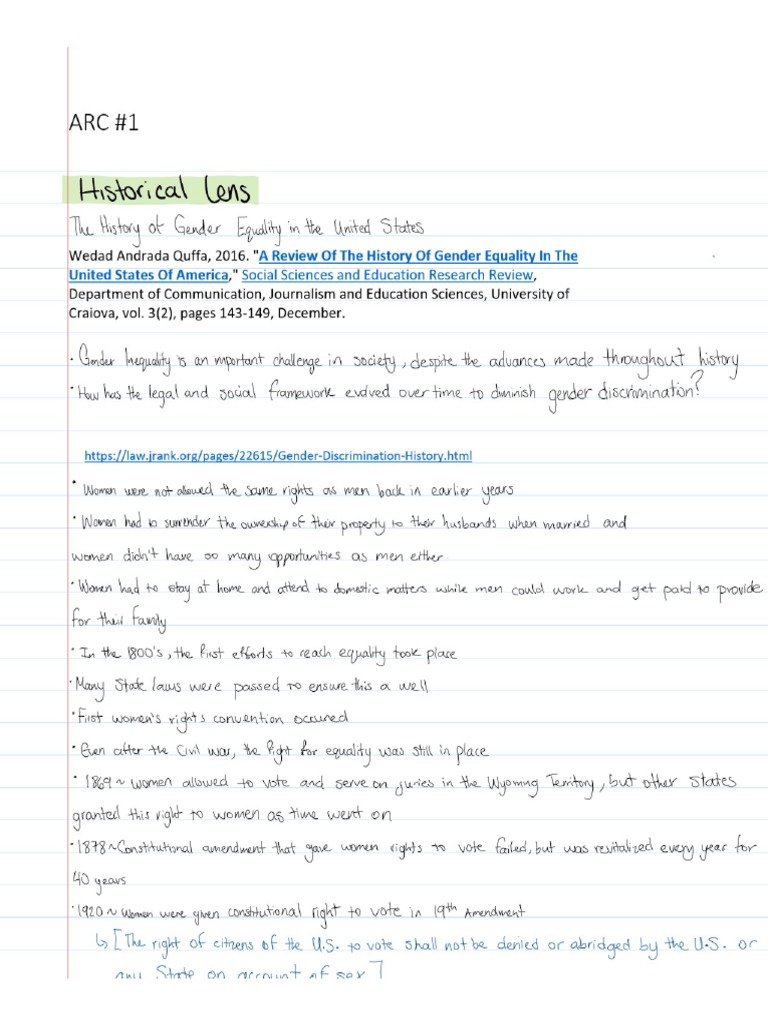 ARC #1
Historical Lens
The History of Gender Equality in the United States
Wedad Andrada Quffa, 2016. "A Review Of The History Of Gender Equality In The
United States Of America," Social Sciences and Education Research Review,
Department of Communication, Journalism and Education Sciences, University of
Craiova, vol. 3(2), pages 143-149, December.
· Gender Inequality is an important challenge in society, despite the advances made throughout history
· How has the legal and social framework evolved over time to diminish gender discrimination?
https://law.jrank.org/pages/22615/Gender-Discrimination-History.html
· Women were not allowed the same rights as men back in earlier years
· Women had to surrender the ownership of their property to their husbands when married and
women didn't have so many opportunities as men either.
· Women had to stay at home and attend to domestic matters while men could work and get paid to provide
for their family
· In the 1800's, the first efforts to reach equality took place
· Many State laws were passed to ensure this a well
· First women's rights convention occured
· Even after the Civil war, the fight for equality was still in place
· 1869 ~ women allowed to vote and serve on juries in the Wyoming Territory, but other States
granted this right to women as time went on
· 1878 ~ Constitutional amendment that gave women rights to vote failed, but was revitalized every year for
40 years
· 1920 ~ Women were given constitutional right to vote in 19th Amendment
↳ [The right of citizens of the U.S. to vote shall not be denied or abridged by the U.S. or
any State on account of sex]